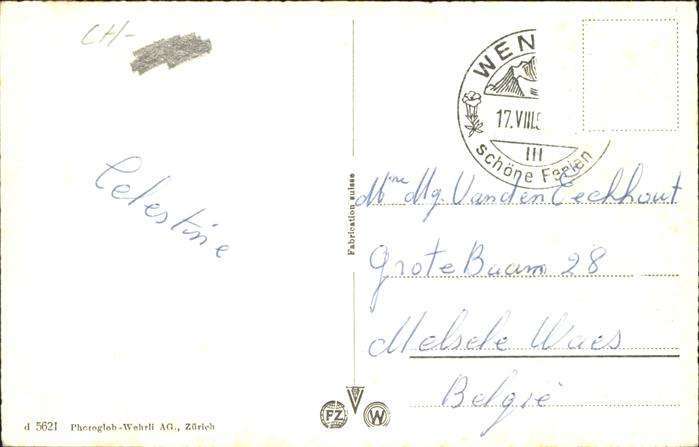 CH-
WEN
17.VIII.5
III
schöne Ferien
Celestine
Fabrication suisse
Mme Mg. Vanden Eeckhout
Grote Baam 28
Melsele Waes
België
PZ
W
d 5621 Photoglob-Wehrli AG., Zürich